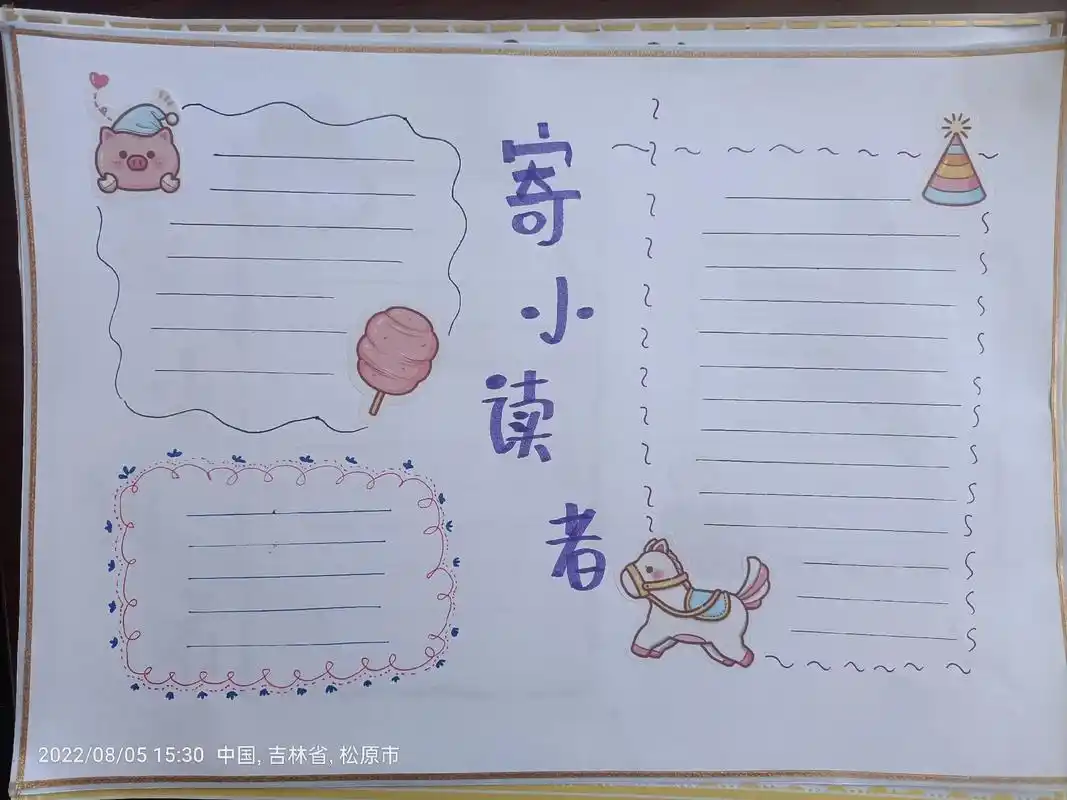 寄
小
读
者
2022/08/05 15:30 中国, 吉林省, 松原市